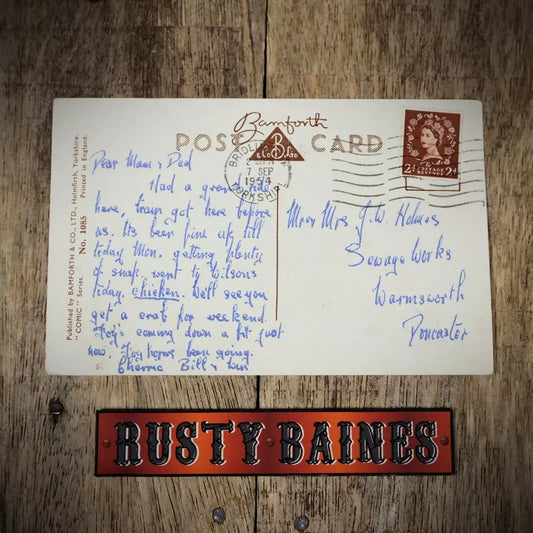 Bamforth
POST CARD
B
& Co Ltd
BRIDLINGTON
7 SEP
1954
YORKSHIRE
2½ POSTAGE REVENUE 2½
Published by BAMFORTH & CO., LTD., Holmfirth, Yorkshire.
"COMIC" Series. No. 1085 Printed in England.
Dear Mam & Dad
Had a grand ride
here, train got here before
us. Its been fine up till
today Mon. getting plenty
of snap. went to Wilsons
today, chicken. We'll see you
get a crab for weekend
Fog's coming down a bit just
now. Fog horns been going.
Cheerio Bill &
Mr & Mrs J. W. Holmes
Sewage Works
Warmsworth
Doncaster
RUSTY BAINES